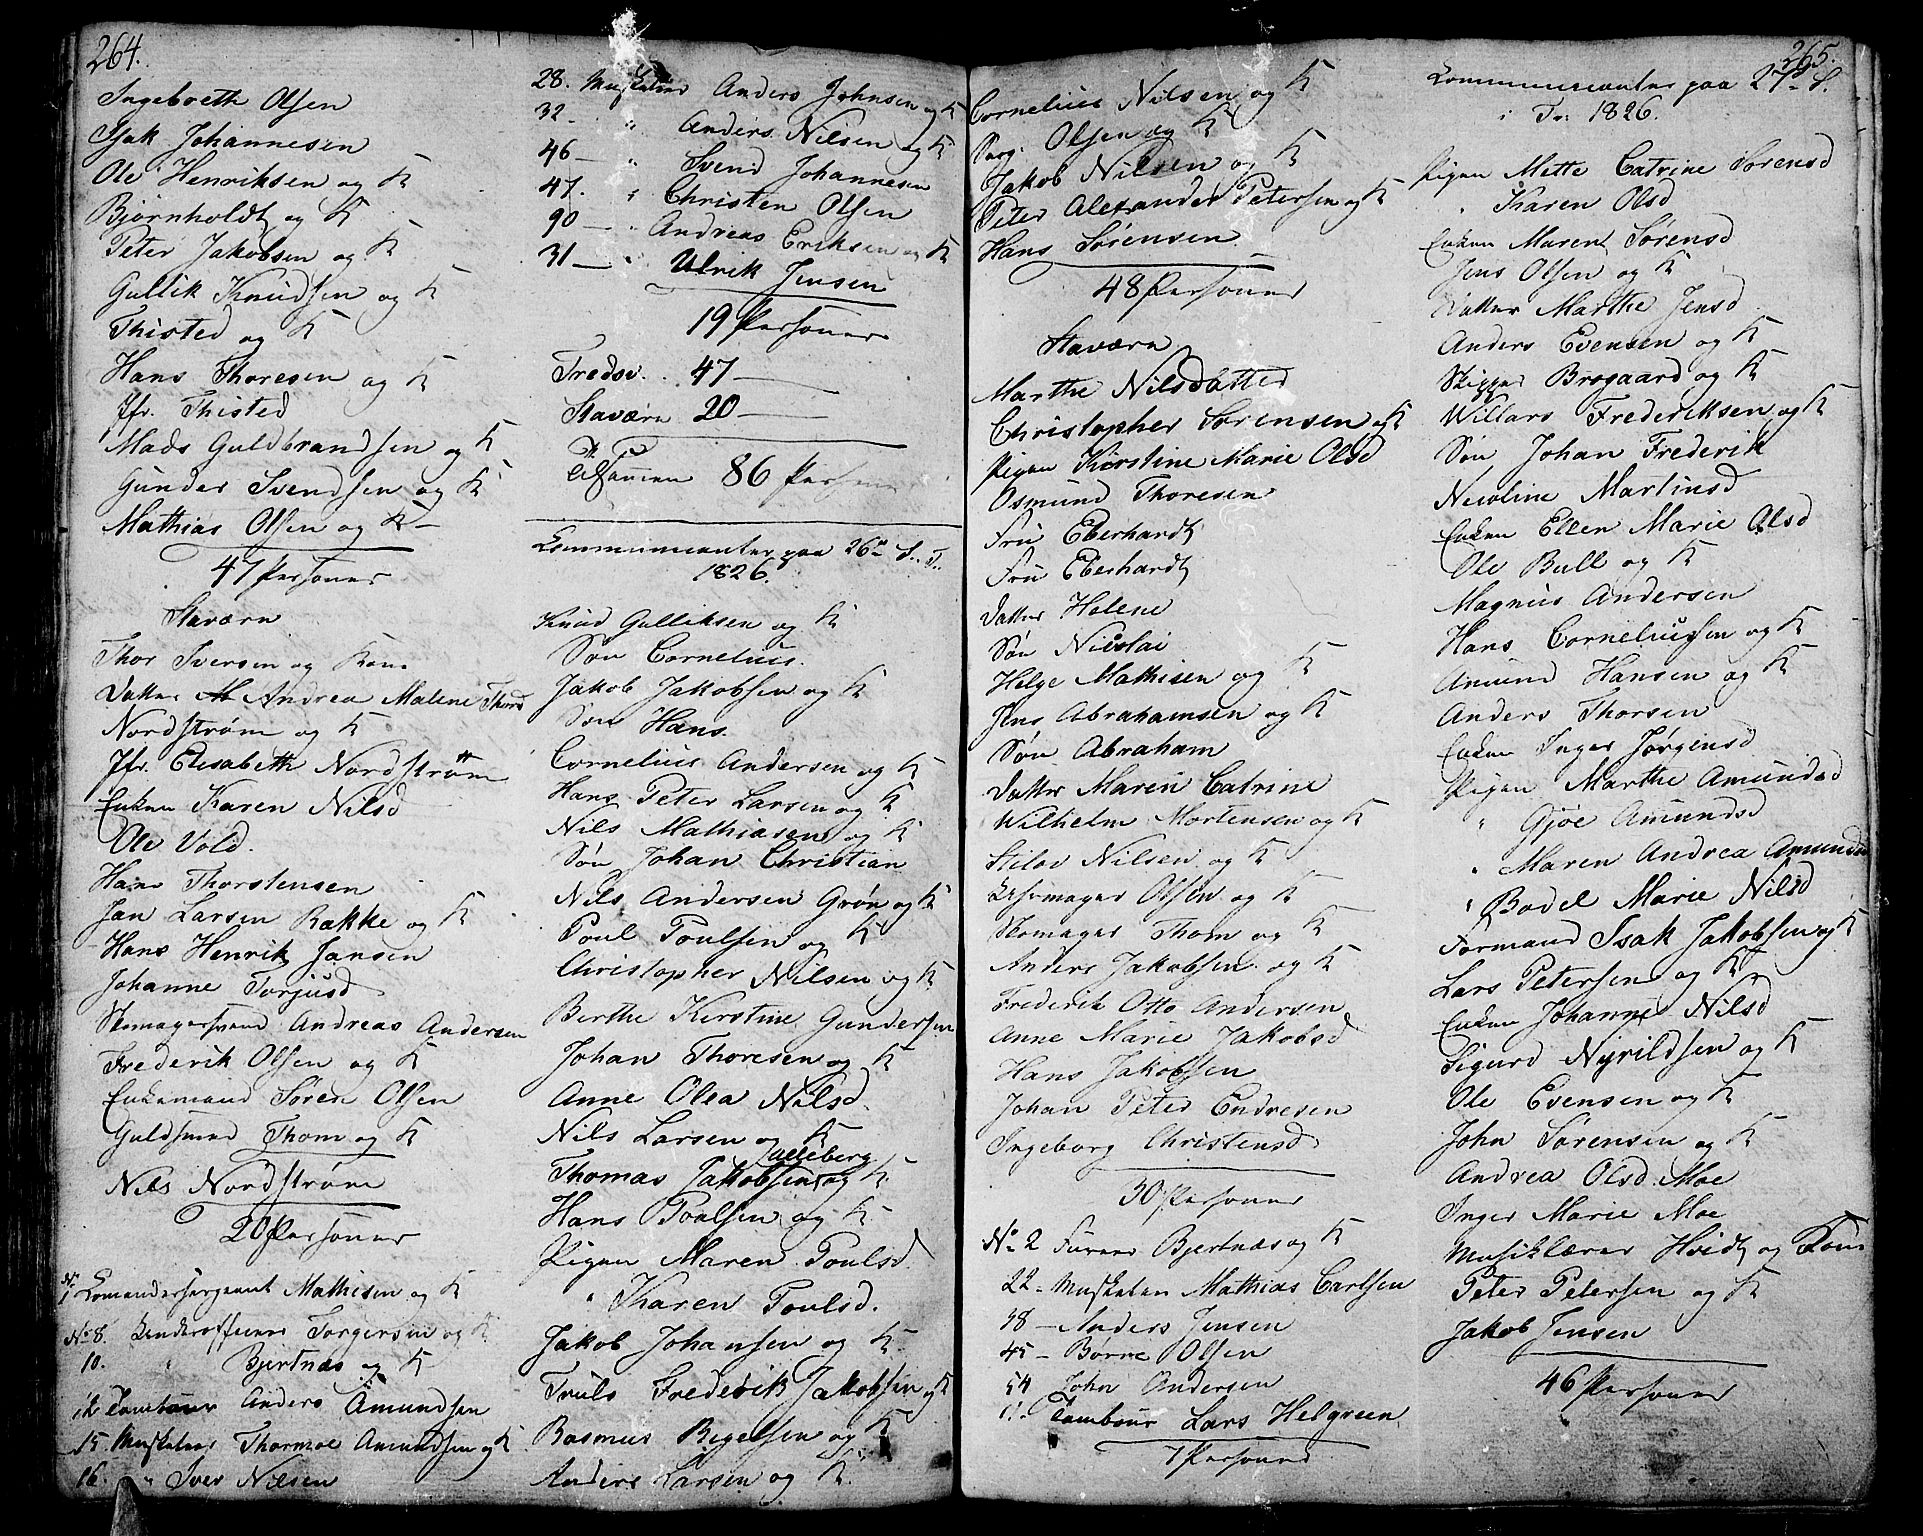 264.
Ingebreth Olsen
Isak Johannesen
Ole Henriksen og K
Bjørnholdt og K
Peter Jakobsen og K
Gullik Knudsen og K
Thisted og K
Hans Thoresen og K
Jfr. Thisted
Mads Guldbrandsen og K
Gunder Svendsen og K
Mathias Olsen og K
47 Personer
Staværn
Thor Iversen og Kone
Datter Andrea Malene Thord
Nordstrøm og K
Jfr. Elisabeth Nordstrøm
Enken Karen Nilsd
Ole Vold.
Hans Thorstensen
Jan Larsen Rakke og K
Hans Henrik Jansen
Johanne Torjusd
Skomagersvend Andreas Andersen
Frederik Olsen og K
Enkemand Søren Olsen
Guldsmed Thom og K
Nils Nordstrøm
20 Personer
No 1 Comandersergeant Mathisen og K
No 8. Underofficeer Torgersen og K
10. " Bjertnæs og K
12 Tambour Anders Amundsen
15 Musketeer Thormoe Amundsen og K
16. " Iver Nilsen
28. Musketeer Anders Johnsen og K
32 - " Anders Nilsen og K
46 - " Svend Johannesen
47. " Christen Olsen
90 - " Andreas Eriksen og K
31 - Ulrik Jensen
19 Personer
Fredsv. 47 -
Staværn 20 -
Tilsammen 86 Personer
Communicanter paa 26de S. T.
1826.
Knud Gulliksen og K
Søn Cornelius.
Jakob Jakobsen og K
Søn Hans.
Cornelius Andersen og K
Hans Peter Larsen og K
Nils Mathiasen og K
Søn Johan Christian
Nils Andersen Grøn og K
Poul Poulsen og K
Christopher Nilsen og K
Berthe Kirstine Gundersen
Johan Thoresen og K
Anne Olea Nilsd.
Nils Larsen og K
Thomas Jakobsen Valleberg og K.
Hans Poulsen og K
Pigen Maren Poulsd.
" Karen Poulsd.
Jakob Johansen og K
Truls Frederik Jakobsen og K
Rasmus Bigelsen og K
Anders Larsen og K
Cornelius Nilsen og K
Serg. Olsen og K
Jakob Nilsen og K
Peter Alexander Petersen og K
Hans Sørensen
48 Personer
Staværn
Marthe Nilsdatter
Christopher Sørensen og K
Pigen Kirstine Marie Olsd
Osmund Thoresen
Fru Eberhardt
Fru Eberhardt
Datter Helene
Søn Nicolai
Helge Mathisen og K
Jens Abrahamsen og K
Søn Abraham
Datter Maren Catrine
Wilhelm Mortensen og K
Stilov Nilsen og K
Uhrmager Olsen og K
Skomager Thom og K
Anders Jakobsen og K
Frederik Otto Andersen
Anne Marie Jakobsd
Hans Jakobsen
Johan Peter Endresen
Ingeborg Christensd
30 Personer
No 2 Fureer Bjertnæs og K
22 - Musketeer Mathias Carlsen
38 - Anders Jensen
45 - Børre Olsen
54 John Andersen
11. Tambour Lars Helgreen
7 Personer
265.
Communicanter paa 27de S.
i Tr. 1826.
Pigen Mette Catrine Sørensd
" Karen Olsd
Enken Maren Sørensd
Jens Olsen og K
Datter Marthe Jensd
Anders Evensen og K
Skipper Brogaard og K
Willars Frederiksen og K
Søn Johan Frederik
Nicoline Martinsd
Enken Ellen Marie Olsd
Ole Bull og K
Magnus Andersen
Hans Corneliussen og K
Amund Hansen og K
Anders Thorsen
Enken Inger Jørgensd
Pigen Marthe Amundsd
" Gjøe Amundsd
" Maren Andrea Amundsd
" Bodel Marie Nilsd
Formand Isak Jakobsen og K
Lars Petersen og K
Enken Johanne Nilsd
Sigurd Nyrildsen og K
Ole Evensen og K
John Sørensen og K
Andrea Olsd Moe
Inger Marie Moe
Musiklærer Hvidt og Kone
Peter Petersen og K
Jakob Jensen
46 Personer